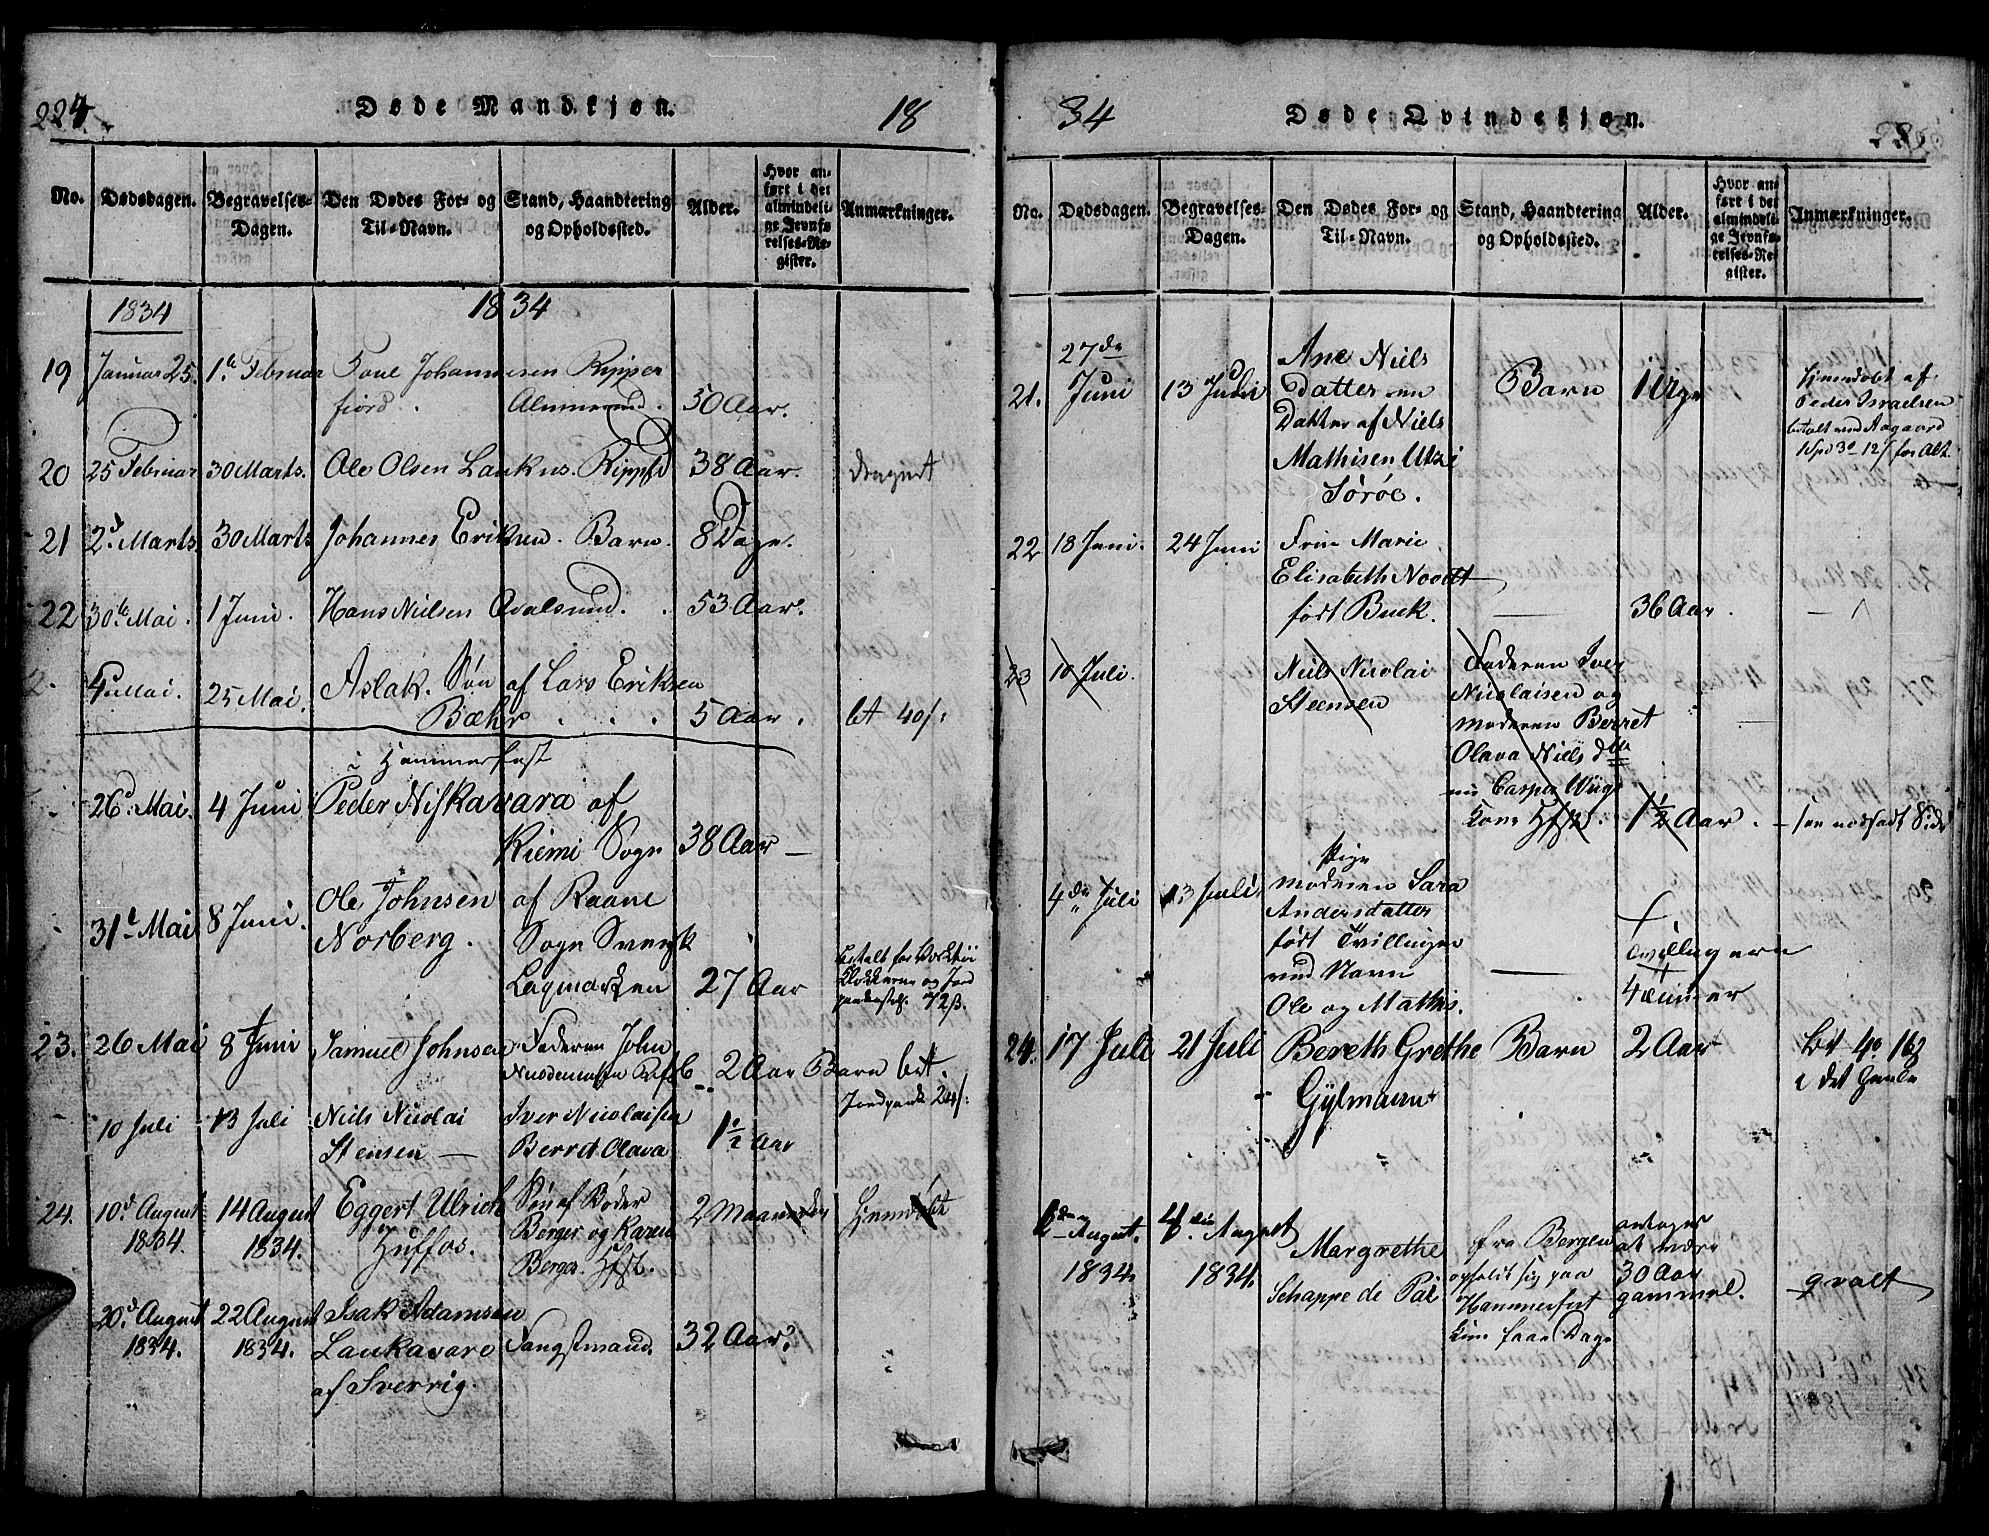 224. Døde Mandkjøn. 18
No. Dødsdagen. Begravelses-Dagen. Den Dødes For- og Til-Navn. Stand, Haandtering og Opholdssted. Alder. Hvor anført i det almindelige Jevnførelses-Register. Anmærkninger.
1834 1834
19 Januar 25. 1te Februar Johannesen Ripper
fiord. 50 Aar.
20 25 Februar 30 Marts. Ole Olsen Laukus. Rippfd 38 Aar.
21 2d Marts 30 Marts Johannes Eriksen. Barn. 8 Dage.
22 30te Mai. 1 Juni. Hans Nielsen Qvalsund. 53 Aar.
4 Mai. 25 Mai. Aslak. Søn af Lars Eriksen
Bæhr . . . 5 Aar. bet 40/:
i Hammerfest
26d Mai. 4 Juni Peder Niskavara af
Kiemi Sogn 38 Aar —
31t Mai 8 Juni. Ole Johnsen af Raane
Norberg. Sogn Svensk
Lapmarken 27 Aar
72ß.
23. 26 Mai 8 Juni Samuel Johnsen Faderen John
2 Aar Barn bet.
24/:
10 Juli 13 Juli Niels Nicolai Iver Nicolaisen 1½ Aar
Stensen — Berret Olava
24. 10d August 14 August Eggert Ulrich Søn af Bøder 2 Maaneder Hjemdøbt
1834. 1834. Huffos. Berger og Karen
Berger. Hfst.
20d August 22 August Isak Adamsen
1834. 1834. Laukavare Fangstmand. 32 Aar.
af Sverrig.
34 Døde Qvindekjøn.
No. Dødsdagen. Begravelses-Dagen. Den Dødes For- og Til-Navn. Stand, Haandtering og Opholdssted. Alder. Hvor anført i det almindelige Jevnførelses-Register. Anmærkninger.
27de Ane Niels
21. Juni 13 Juli Datter en Barn 1 Uge hjemdøbt af
Datter af Niels Peder Israelsen
betalt ved Aagaard
Mathisen Utzi
Sørøe.
22 18 Juni. 24 Juni Frue Marie
Elisabeth Noodt
født Buck. — 36 Aar.
23 10 Juli. Niels Nicolai Faderen Iver
Steensen Nicolaisen og
moderen Berret
Olava Niels dtr
Kone Hfst. 1½ Aar. — see modsadt Side
Pige
4de Juli 13 Juli moderen Sara
Andersdatter
født Tvillinger
ved Navn
Ole og Mathis. — 4
24. 17 Juli 21 Juli Bereth Grethe Barn 2 Aar bet
Gylmann
2den August. 4de August Margrethe fra Bergen antages
1834. 1834. Schappe de Pal opholdt sig paa at være
Hammerfest 30 Aar
kun faae Dage gammel. qvalt